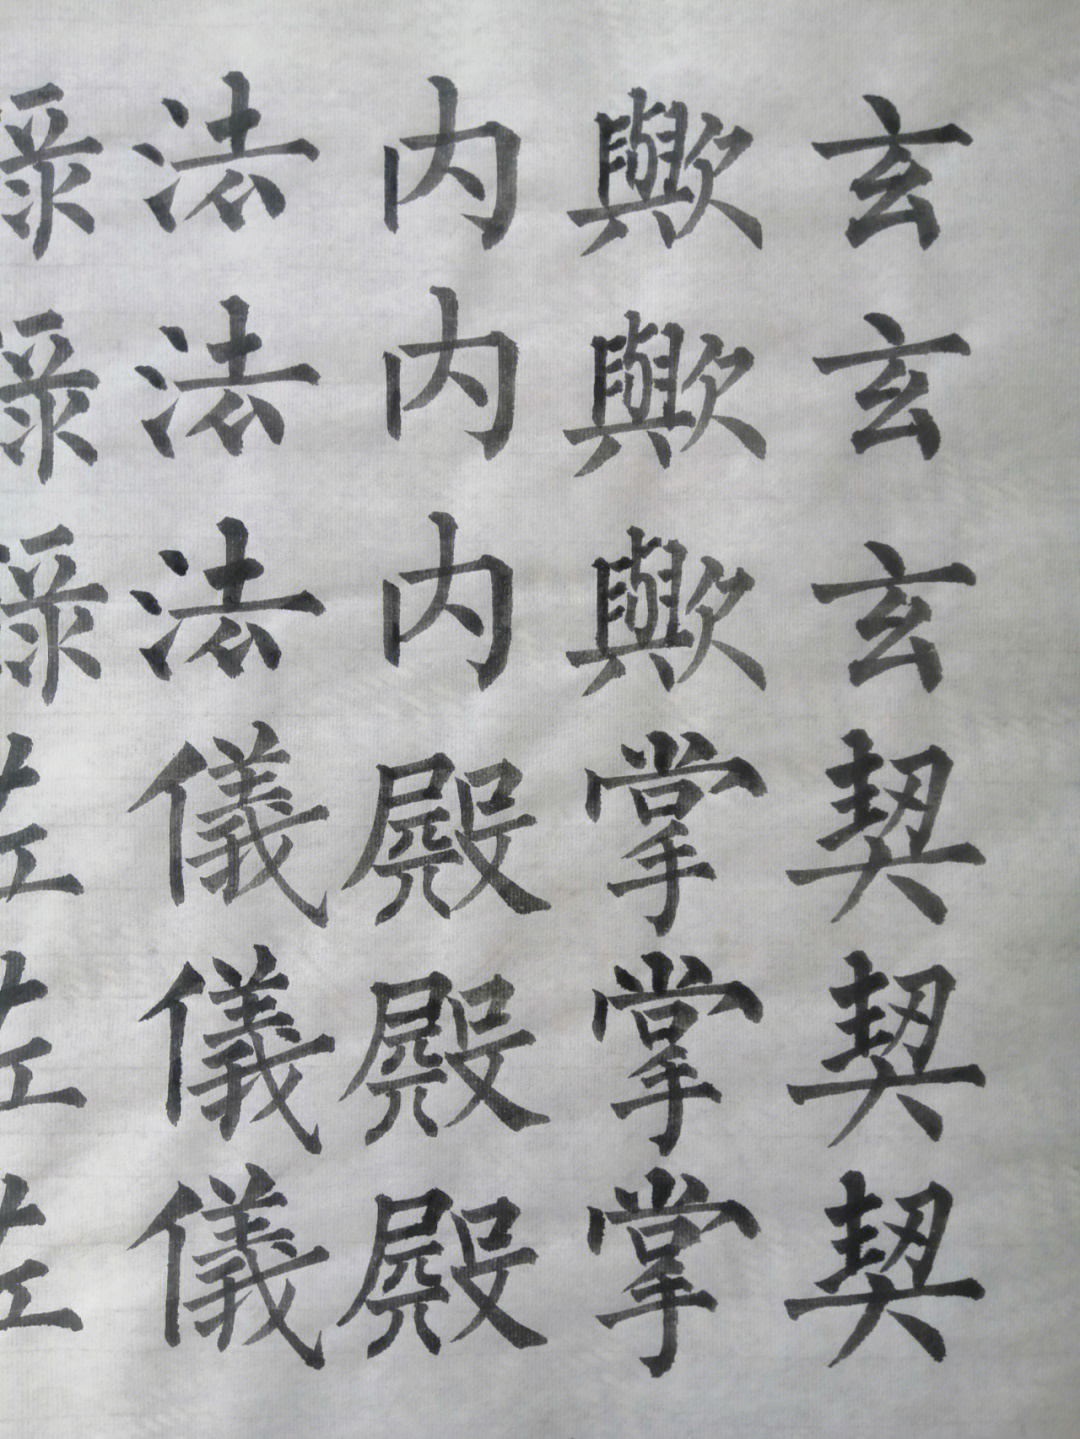 玄玄玄契契契
歟歟歟掌掌掌
内内内殿殿殿
法法法儀儀儀
録録録左左左